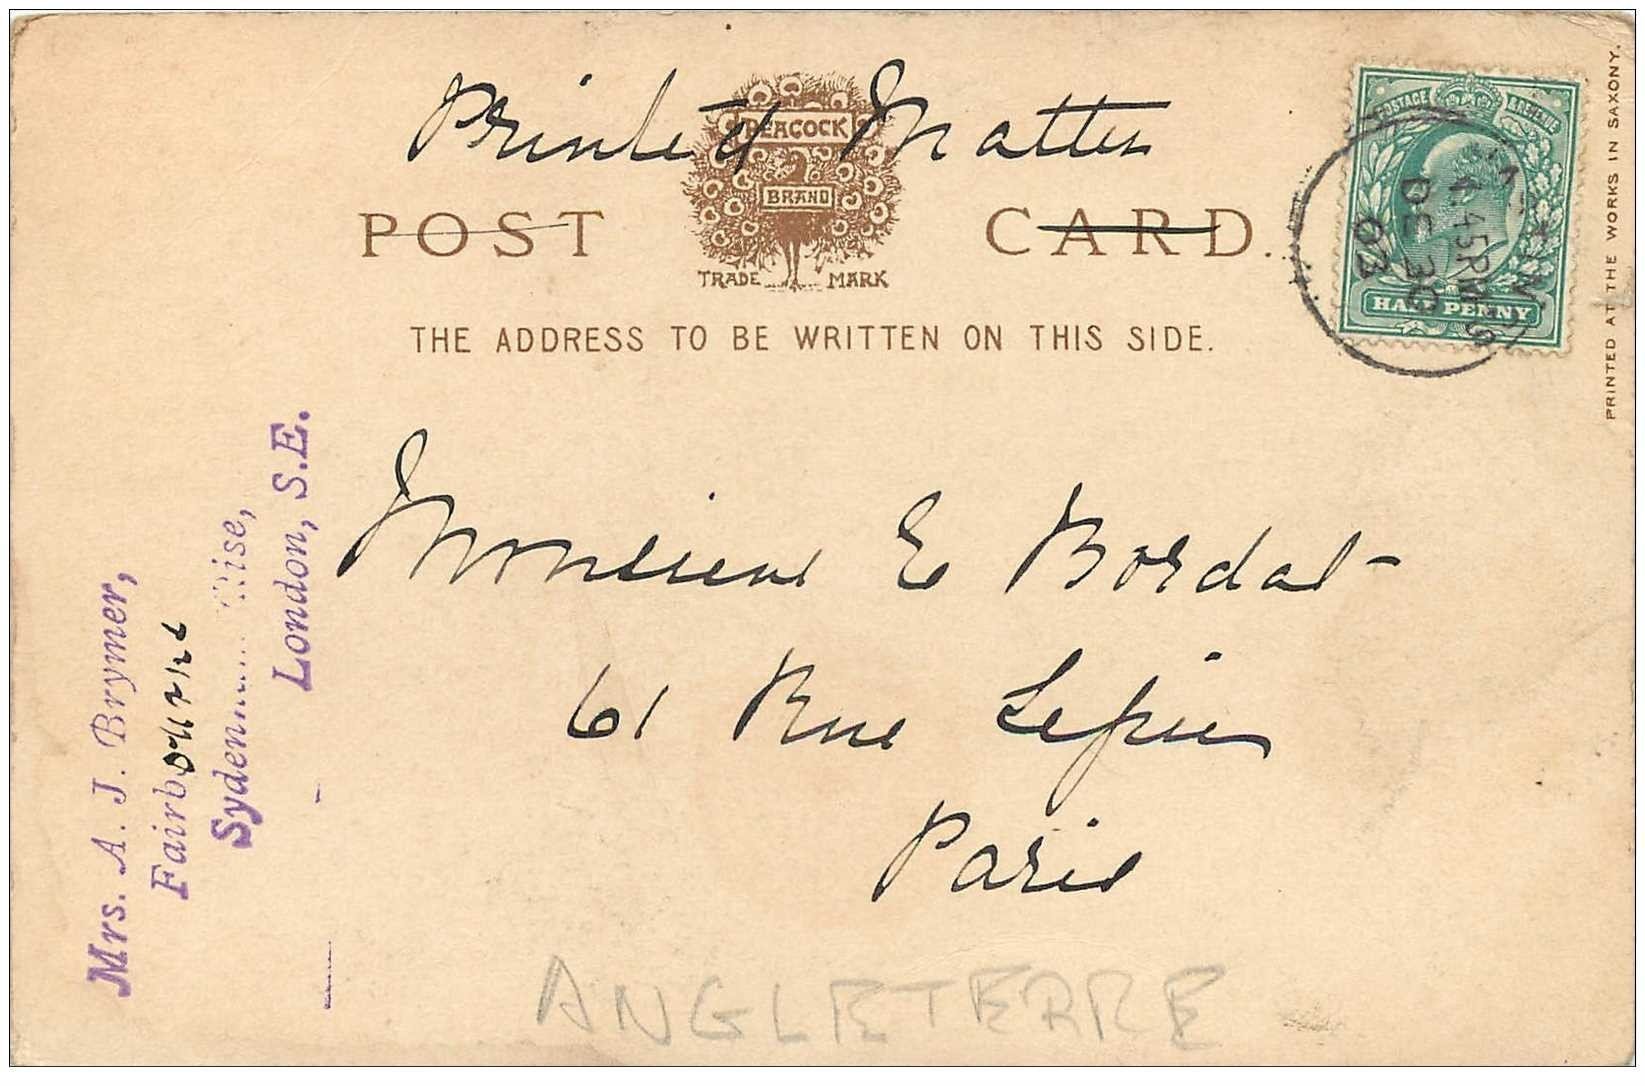 Printed Matter
PEACOCK
BRAND
TRADE MARK
POST CARD.
THE ADDRESS TO BE WRITTEN ON THIS SIDE.
POSTAGE & REVENUE
HALF PENNY
4.45PM
DE 30
03
PRINTED AT THE WORKS IN SAXONY.
Monsieur E Bordat
61 Rue Lepic
Paris
Mrs. A. J. Brymer,
Fairbourne
Rise,
London, S.E.
ANGLETERRE